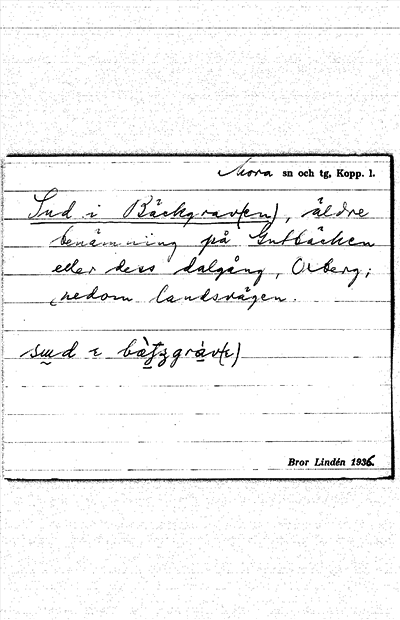 Mora sn och tg, Kopp. l.
Sud i Bäckgrav(en), äldre
benämning på Gutbäcken
eller dess dalgång, Oxberg;
nedom landsvägen.
Bror Lindén 1936.